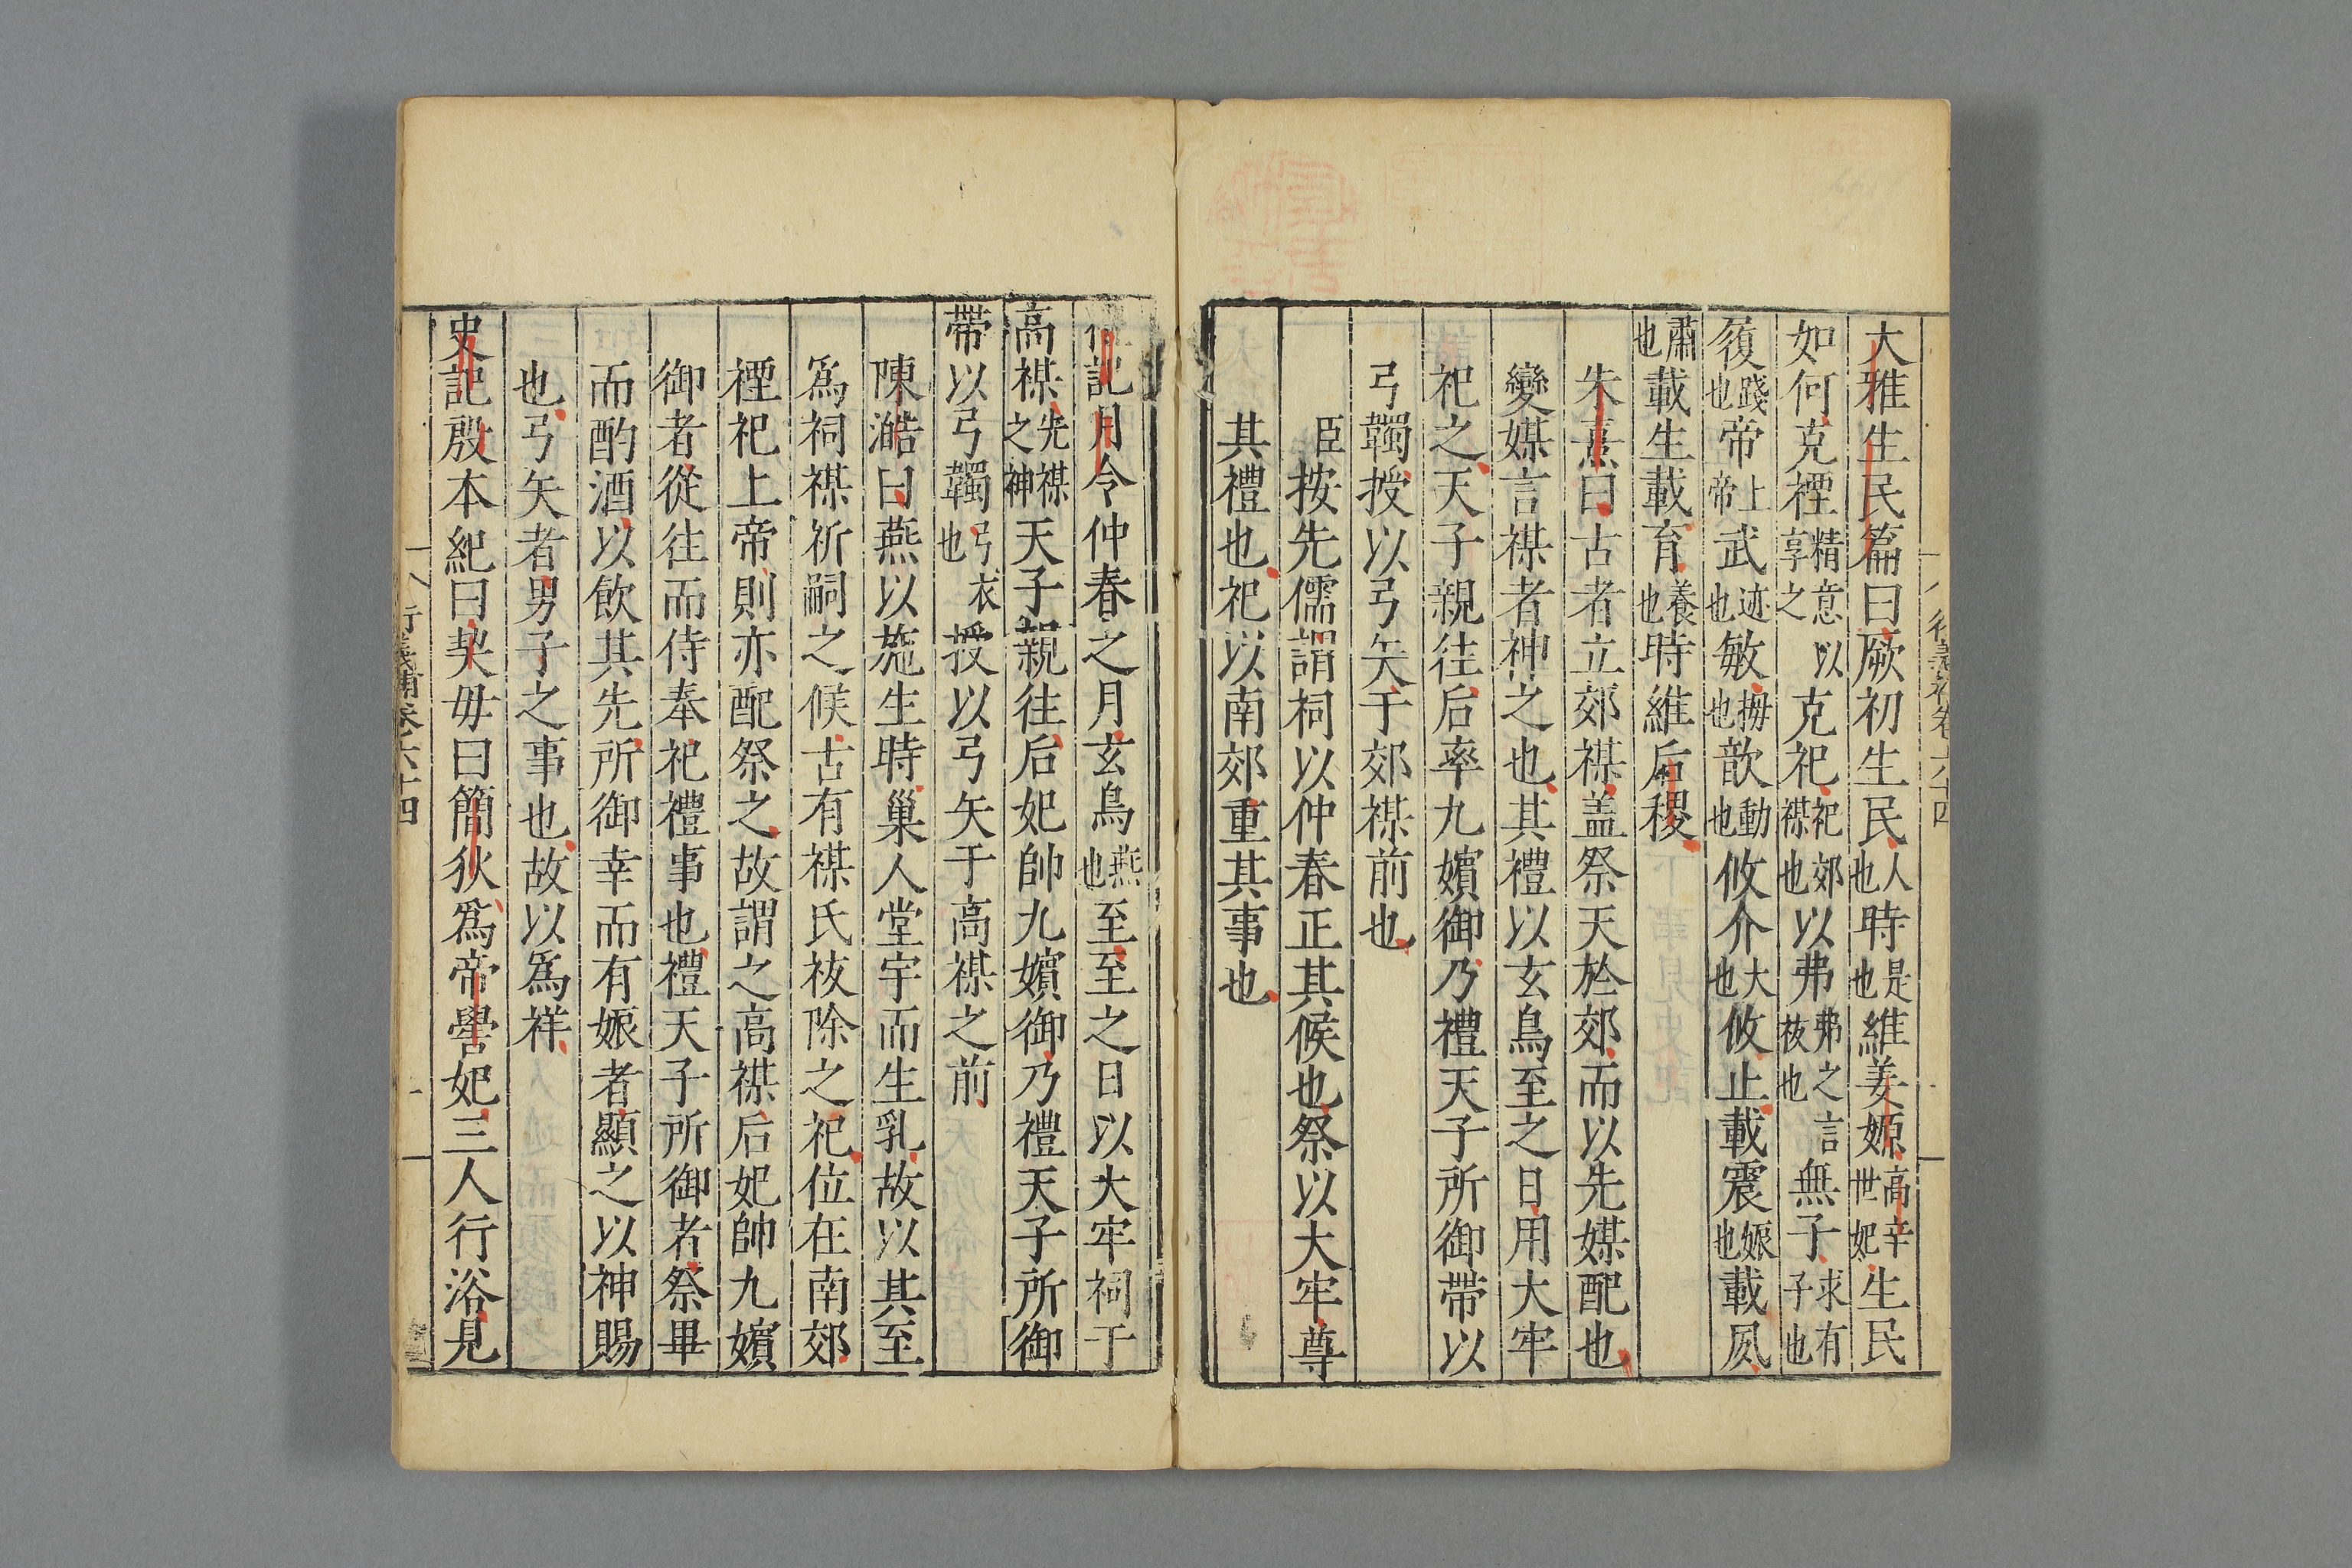 大雅生民篇曰厥初生民人也時是也維姜嫄高辛世妃生民
如何克禋精意以享之克祀祀郊禖也以弗弗之言祓也無子求有子也
履踐也帝上帝武迹也敏拇也歆動也攸介大也攸止載震娠也載夙
肅也載生載育養也時維后稷
朱熹曰古者立郊禖盖祭天於郊而以先媒配也
變媒言禖者神之也其禮以玄鳥至之日用大牢
祀之天子親往后率九嬪御乃禮天子所御帶以
弓韣授以弓矢于郊禖前也
臣按先儒謂祠以仲春正其候也祭以大牢尊
其禮也祀以南郊重其事也
記月令仲春之月玄鳥燕也至至之日以大牢祠于
高禖先禖之神天子親往后妃帥九嬪御乃禮天子所御
帶以弓韣弓衣也授以弓矢于高禖之前
陳澔曰燕以施生時巢人堂宇而生乳故以其至
爲祠禖祈嗣之候古有禖氏祓除之祀位在南郊
禋祀上帝則亦配祭之故謂之高禖后妃帥九嬪
御者從往而侍奉祀禮事也禮天子所御者祭畢
而酌酒以飲其先所御幸而有娠者顯之以神賜
也弓矢者男子之事也故以爲祥
史記殷本紀曰契毋曰簡狄爲帝嚳妃三人行浴見
衍義補卷六十四